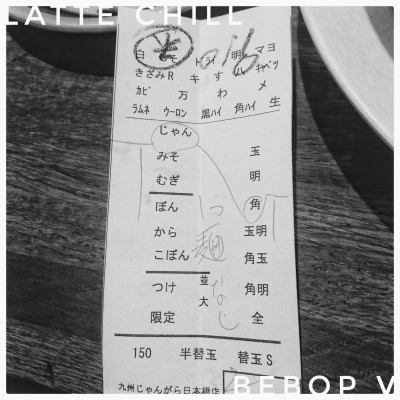 LATTE CHILL
白 みそ ドライ 明 マヨ
きざみR キ す ハ キャベツ
カピ 万 わ メ
ラムネ ウーロン 黒ハイ 角ハイ 生
じゃん
みそ 玉
むぎ 明
ぼん 角
から 玉明
こぼん 角玉
麺なし
つけ 並 角明
大
限定 全
150 半替玉 替玉S
九州じゃんがら日本橋店
BEBOP V